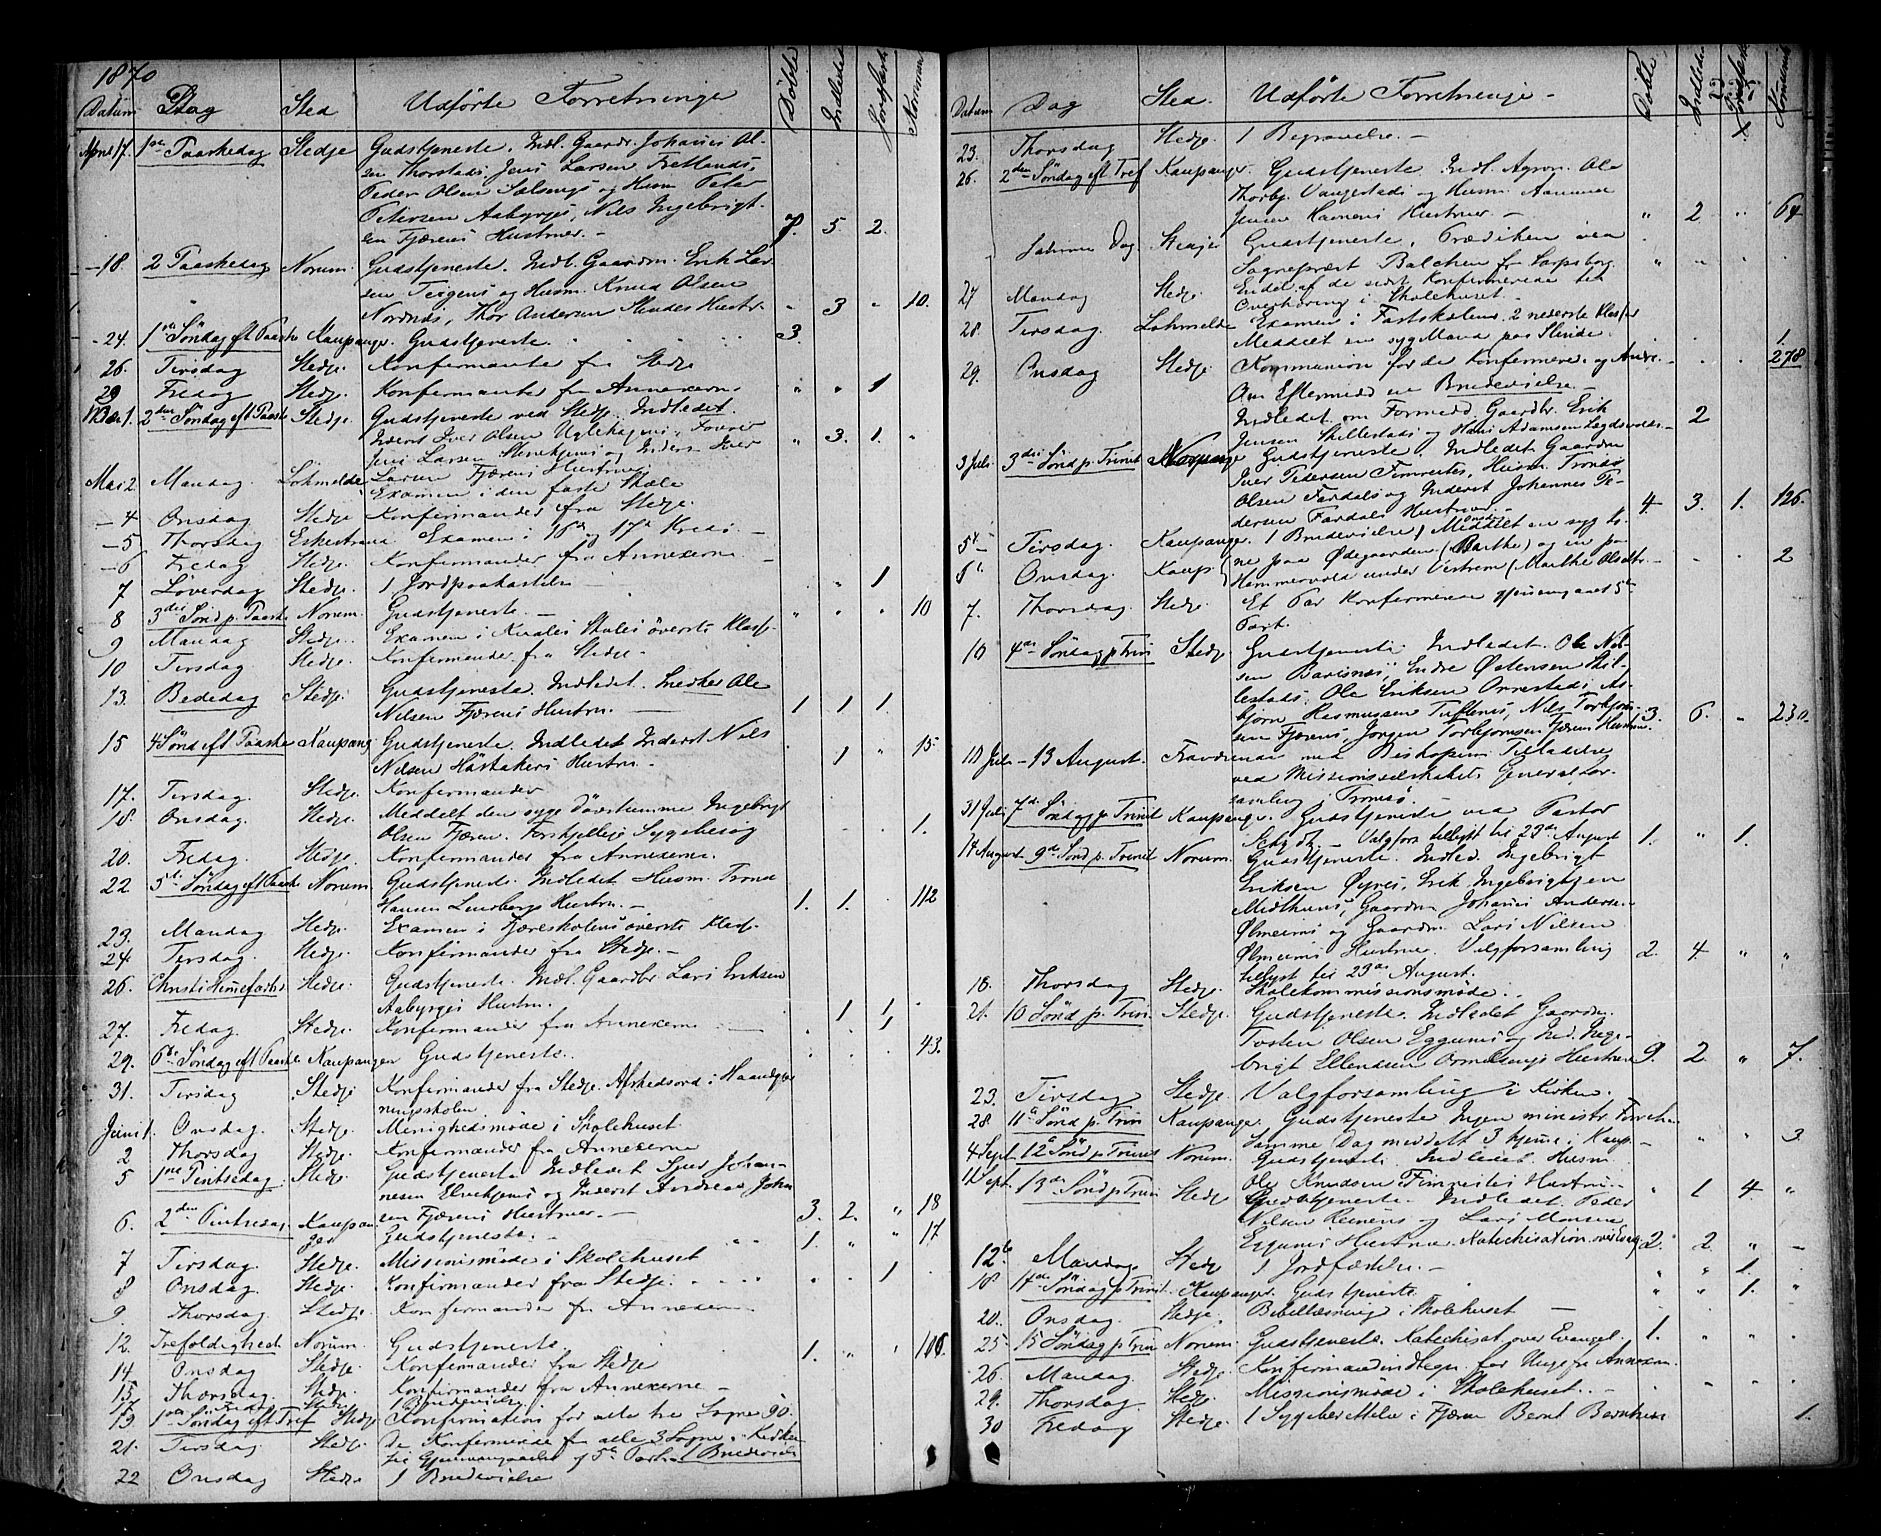 1870
Datum Dag Sted Udförte Forretninger Döbte Indledte Jordfæstede Kommun
April 17. 1ste Paaskedag Stedje Gudstjeneste. Indl. Gaardr. Johanes Ol-
sen Thorstads, Jens Larsen Fretlands,
Peder Olsen og Husm Peter
Petersen Aabyrges, Nils Ingebrigt-
sen Fjærens Hustruer. - 7. 5. 2.
- 18. 2 Paaskedag Norum. Gudstjeneste. Indl. Gaardm. Erik Lar
sen Teigens og Husm. Knud Olsen
Nordnes, Thor Andersen Hustr. - 3 " 10.
- 24. 1ste Söndag eft Paaske Kaupanger. Gudstjeneste. 3.
26. Tirsdag Stedje. Konfirmanter fra Stedje
29 Fredag Stedje. Konfirmanter fra Annexerne " " 1
Mai 1. 2den Söndag eft Paaske Stedje. Gudstjeneste ved Stedje. Indledet.
Inderst Iver Olsen Uglehagens,
Jens Larsen Stenehjems og Inderst Iver " 3. 1. "
Larsen Fjærens Hustruer
Mai 2 Mandag Lohmelde Examen i den faste Skole
- 4 Onsdag Stedje Konfirmander fra Stedje.
- 5 Thorsdag Eskestrand Examen i 16de og 17de Kreds -
- 6 Fredag Stedje. Konfirmander fra Annexerne -
7 Löverdag Stedje. 1 Jordpaakastelse - " 1
8 3die Sönd p. Paaske Norum. Gudstjeneste. - " " " 10
9 Mandag Stedje. Examen i Skoles överste Klasse.
10 Tirsdag Stedje. Konfirmander fra Stedje -
13. Bededag Stedje. Gudstjeneste. Indledet Snedker Ole
Nilsen Fjærens Hustru. - 1 1 1
15 4 Sönd eft Paaske Kaupang Gudstjeneste. Indledet Inderst Nils
Nilsen Hustru - . 1 " 15.
17. Tirsdag. Stedje. Konfirmander
18. Onsdag. Stedje. Meddelt den syge dövstumme Ingebrigt
Olsen Fjæren. Forskjellige Sygebesög 1.
20. Fredag. Stedje. Konfirmander fra Annexerne.
22 5te Söndag eft Paaske Norum Gudstjeneste. Indledet Husm. Trond
Hansen Hustru. - 1. 1. 112
23. Mandag Stedje. Examen i Fjæreskolens överste Klasse.
24. Tirsdag. Stedje. Konfirmander fra Stedje. -
26. Christi Himmelfartsd Stedje. Gudstjeneste. Indl. Gaardbr. Lars Eriksen
Aabyrges Hustru. 1 1
27. Fredag. Stedje. Konfirmander fra Annexerne 1
29. 6te Söndag eft Paaske Kaupanger Gudstjeneste. 43.
31. Tirsdag Stedje Konfirmander fra Stedje. Afskedsord i Haandger
ningsskolen
Juni 1. Onsdag. Stedje. Menighedsmöde i Skolehuset
2 Thorsdag Stedje. Konfirmander fra Annexerne
5 1ste Pintsedag Stedje. Gudstjeneste Indledet Sjur Johan-
nesen Elvehjems og Inderst Andreas John
sen Fjærens Hustruer. - 3. 2. " 18
6. 2den Pintsedag Kaupan
ger Gudstjeneste. - 1. " " 17
7 Tirsdag Stedje. Missionsmöde i Skolehuset
8 Onsdag. Stedje. Konfirmander fra Stedje. 1
9. Thorsdag Stedje. Konfirmander fra Annexerne
12. Trefoldigheds Norum. Gudstjeneste 1. " 106.
14. Onsdag Stedje. Konfirmander fra Stedje
15. Thorsdag. Stedje. Konfirmander fra Annexerne -
17 Fredag Stedje 1 Brudevielse.
19. 1ste Söndag eft Tref Stedje Confirmation for alle tre Sogne 90.
21. Tirsdag Stedje. De Konfirmerede fra alle 3 Sogne i Kirken
til Gjennemgaaelse af 5te Part. 1 Brudevielse
22 Onsdag Stedje 1 Brudevielse
Datum Dag Sted. Udförte Forretninger - Döbte Indledte Jordfæstede Kommunic
23. Thorsdag Stedje. 1 Begravelse. -
26. 2den Söndag eft Tref Kaupanger. Gudstjeneste. Indl. Agron. Ole
Thorbj. Vangestads og Husm.
Jensen Hustruer. - " 2 " 64
Samme Dag Stedje Gudstjeneste. Prædiken ved
Sogneprest Balchen fr Sarpsborg. " " "
27 Mandag Stedje. Endel af de sidst Konfirmerede til
Overhöring i Skolehuset -
28. Tirsdag. Lohmelde Examen i Fastskolens 2 nederste Klasser
Meddelt en syg Mand paa Slinde. 1.
29. Onsdag Stedje. Kommunion for de Konfirmerede og Andre. - 278
Om Eftermidd en Brudevielse. -
Indledet om Formidd. Gaardbr. Erik
Jensen Skillestads og Hans Adamsen 2
3 Juli 3die Sönd p. Trinit Gudstjeneste. Indledet Gaardm
Iver Pedersen Fimreites, Husm. Tronds
Olsen Fardals og Inderst Johannes Pe-
dersen Fardals Hustruer. 4. 3. 1. 126.
5te Tirsdag. Kaupanger. 1 Brudevielse. Meddelt en syg Ko-
ne paa Ødegaarden (Marthe) og en paa
6te Onsdag. Kaup. Hammervold under Vestrem (Marthe Olsdtr. - 2
7. Thorsdag Stedje. Et Par Konfirmerede gjennemgaaet 5te
Part.
10 4de Söndag p Trin Stedje Gudstjeneste Indledet. Ole Nil-
sen Barsnes, Endre Østensen Skil-
lestads, Ole Eriksen Ornestads, As-
björn Rasmussen Tuftenes, Nils Torbjörn
sen Fjærens, Jörgen Torbjörnsen Fjærens Hustruer. 3. 6. " 230.
11 Juli - 13 August. Fraværende med Biskopens Tilladelse
ved Missionsselskabets Generalfor.
samling i Tromsö. -
31 Juli 7de Söndag p Trinit Kaupanger. Gudstjeneste ved Pastor
- Valgfors tillyst til 23de August 1. " 1.
14 August 9de Sönd p. Trinit Norum. Gudstjeneste. Indled. Ingebrigt
Eriksen Øyres, Erik Ingebrigtsen
Midthuns, Gaardm Johanes Anderse.
Ølmeims og Gaardm. Lars Nilsen
Ølmeims Hustruer. Valgforsamling 2. 4 " "
tillyst til 23de August.
18. Thorsdag Stedje. Skolekommissionsmöde.
21. 10 Sönd p. Trin. Stedje. Gudstjeneste. Indledet Gaardm.
Torsten Olsen Eggums og Ind. Inge-
brigt Ellendsen Hustruer 9. 2. " 7.
23. Tirsdag Stedje. Valgforsamling i Kirken.
28. 11te Sönd p. Trin Kaupanger. Gudstjeneste Ingen ministr Forretn
Samme Dag meddelt 3 hjemme i Kaup. - " " 3.
4 Sept 12te Sönd p Trinit Norum. Gudstjeneste. Indledet. Husm.
Ole Knudsen Fimreites Hustru. - " 1 4 "
11 Sept. 13de Sönd p Trin Stedje Gudstjeneste. Indledet. Peder
Nilsen og Lars Monsen
Eggums Hustruer. Katechisation over Evang. 2. 2. " -
12te Mandag Stedje 1 Jordfæstelse. - " " 1.
18 14de Söndag p Trinit. Kaupanger. Gudstjeneste " " 1. "
20. Onsdag. Stedje. Bibellæsning i Skolehuset -
25 15 Söndag p Trin Norum. Gudstjeneste. Katechisat. over Evangel. 1. " " .
26. Mandag. Stedje. Konfirmandindtegn. for Unge fra Annexern.
29. Thorsdag. Stedje. Missionsmöde i Skolehuset. -
30 Fredag Stedje. 1 Sygeberettelse i Fjæren Bernt Berntsen 1.